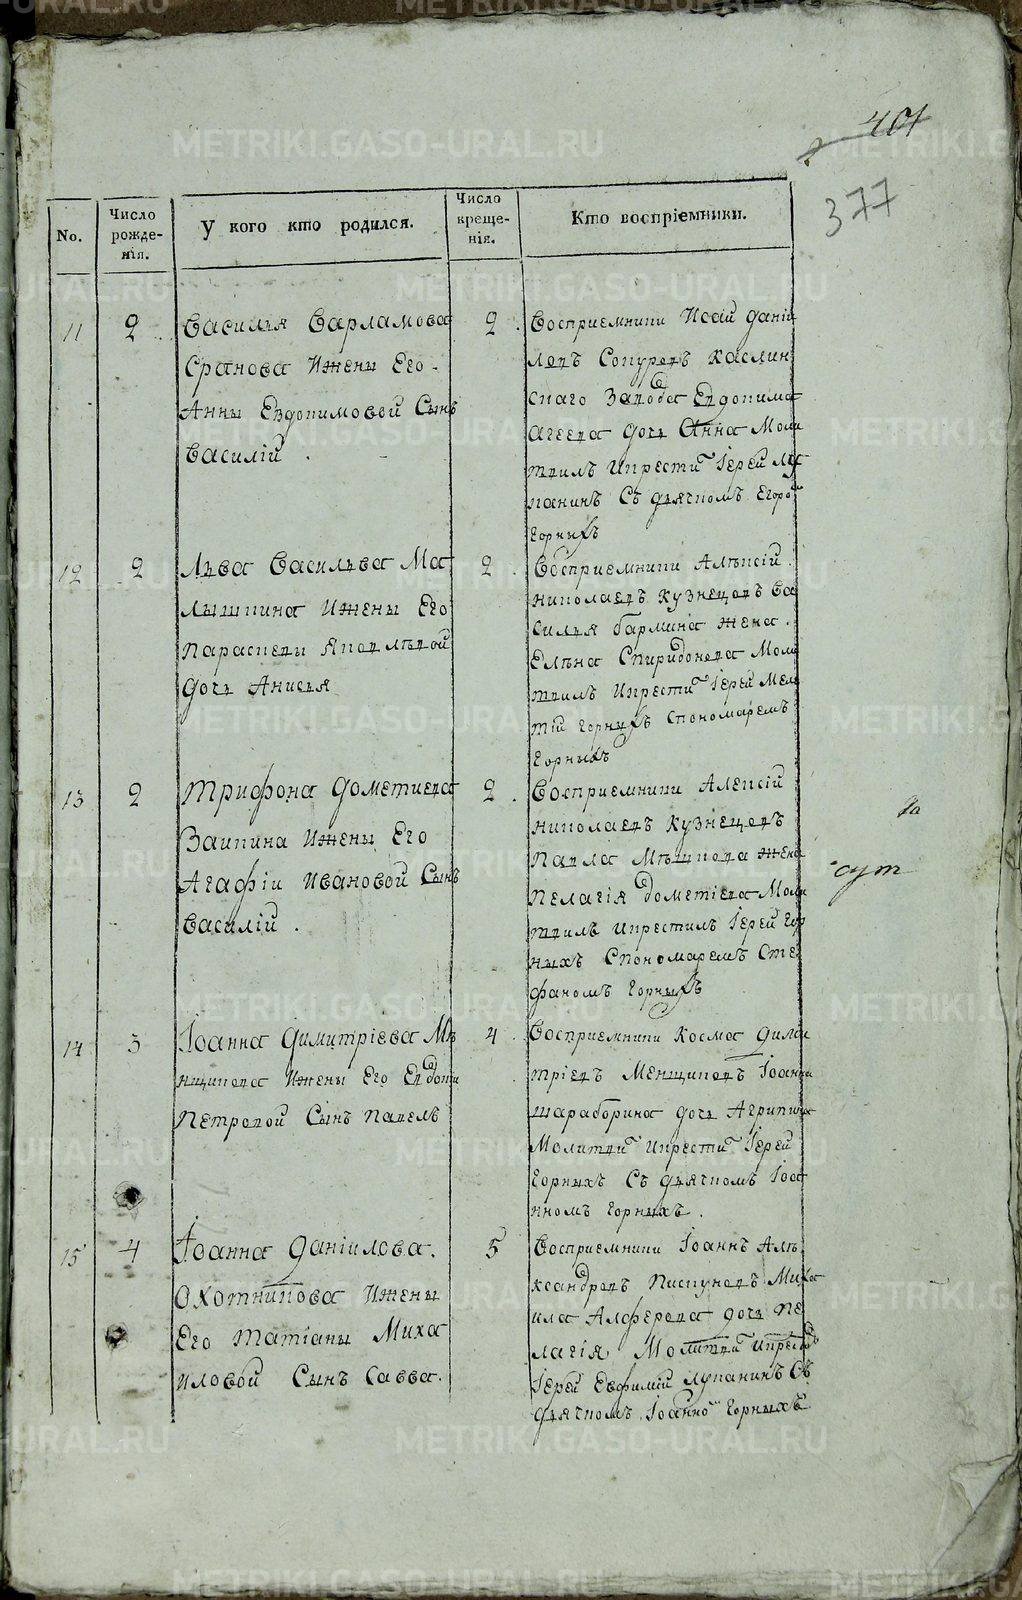 401
377
No.
Число рожде-нія.
У кого кто родился.
Число креще-нія.
Кто воспріемники.
11
2
Василья Варламова
Сранова Ижены Его
Анны Евдокимовой Сынъ
Василій
2
Восприемники Исай Дани
ловъ Сопуровъ Каслин
скаго Завода Евдокима
Агеева дочь Анна Моли
твилъ икрести Іерей Лу
канинъ Съ дьячкомъ Егоро
Горныхъ
12
2
Льва Васильва Ма
лышкина Ижены Его
Параскевы Яковлѣвой
дочь Анисья
2
Восприемники Алѣксій
Николаевъ Кузнецовъ Ва
силья бармина жена
Елѣна Спиридонова Моли
твилъ Икрести Іерей Меле
тій Горныхъ Спономаремъ
Горныхъ
13
2
Трифона Дометиева
Заикина Ижены Его
Агафіи Ивановой Сынъ
Василій .
2
Восприемники Алексій
Николаевъ Кузнецовъ
Павла Мѣшкова жена
Пелагія Дометіева Моли
твилъ Икрестилъ Іерей Гор
ныхъ Спономаремъ Сте
фаномъ Горныхъ
14
3
Іоанна Димитріева Мѣ
нщикова Ижены Его Евдоки
Петровой Сынъ Павелъ
4
Восприемники Косма Дими
тріевъ Менщиковъ Іоанна
шараборина дочь Агрипина
Молитви Икрести Іерей
Горныхъ Съ дьячкомъ Іоа
нномъ Горныхъ .
15
4
Іоанна Даніилова.
Охотникова Ижены
Его Татіаны Миха
иловой Сынъ Савва.
5
Восприемники Іоаннъ Алѣ
ксандровъ Пискуновъ Миха
ила Алферова дочь Пе
лагія Молитви Икрести
Іерей Евфимій Луканинъ Съ
дьячкомъ Іоанно Горныхъ
METRIKI.GASO-URAL.RU